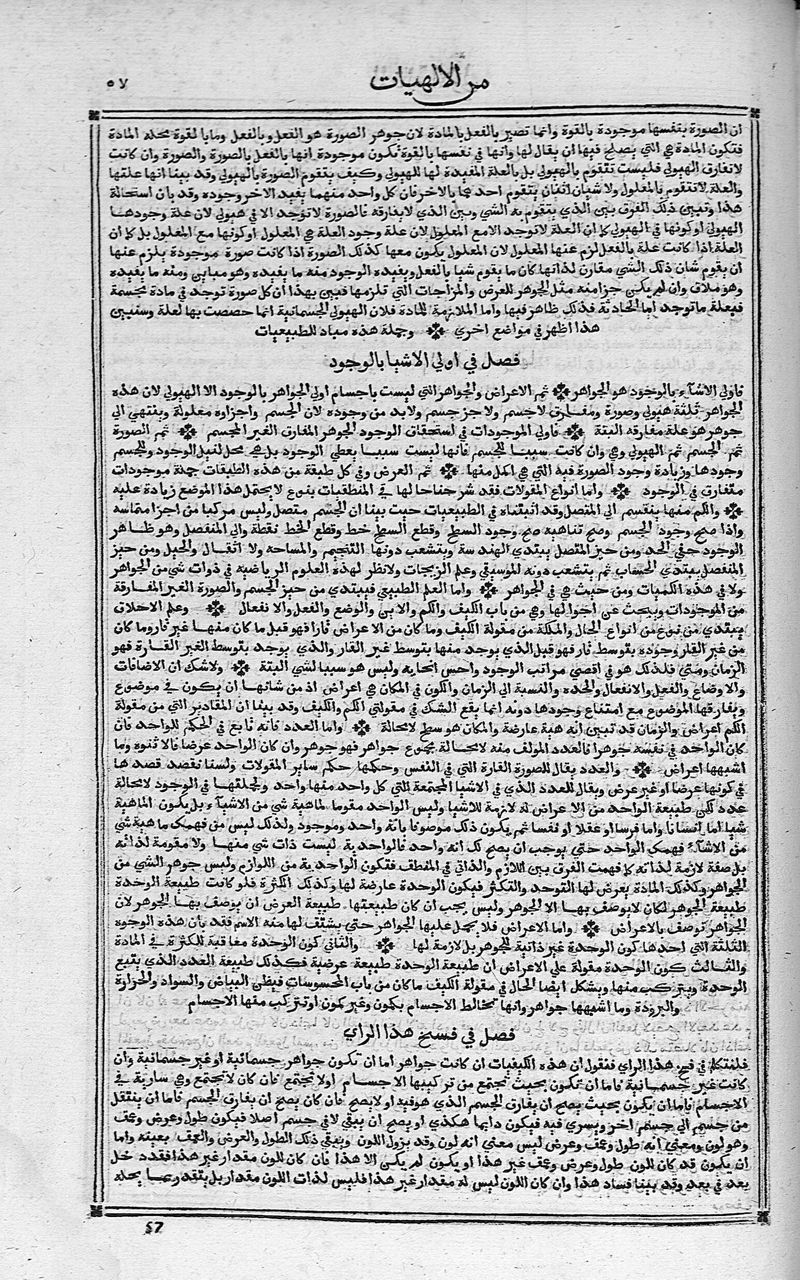 من الالهيات
٥٧
ان الصورة بنفسها موجودة بالقوة وانما تصير بالفعل بالمادة لان جوهر الصورة هو الفعل وبالفعل وما بالقوة محله المادة
فتكون المادة هي التي يصلح فيها ان يقال لها وانها في نفسها بالقوة تكون موجودة انها بالفعل بالصورة والصورة وان كانت
لا تفارق الهيولي فليست تتقوم بالهيولي بل بالعلة المفيدة لها الهيولي وكيف يتقوم الصورة بالهيولي وقد بينا انها علتها
والعلة لا تتقوم بالمعلول ولا شيان اثنان يتقوم احدهما بالاخر فان كل واحد منهما يفيد الاخر وجوده وقد بان استحالة
هذا وتبين ذلك الفرق بين الذي يتقوم به الشي وبين الذي لا يفارقه فالصورة لا توجد الا في هيولي لان علة وجودها
الهيولي او كونها في الهيولي كما ان العلة لا توجد الا مع المعلول لان علة وجود العلة هي المعلول او كونها مع المعلول بل كما ان
العلة اذا كانت علة بالفعل لزم عنها المعلول لان المعلول يكون معها كذلك الصورة اذا كانت صورة موجودة يلزم عنها
ان يقوم شان ذلك الشي مقارن لذاتها كان ما يقوم شيا بالفعل ويفيده الوجود منه ما يفيده وهو مباين ومنه ما يفيده
وهو ملاق وان لم يكن جزا منه مثل الجوهر للعرض والمزاجات التي تلزمها فبين بهذا ان كل صورة توجد في مادة مجسمة
فبعلة ما توجد اما الحادثة فذلك ظاهر فيها واما الملازمة للمادة فلان الهيولي الجسمانية انما خصصت بها لعلة وسنبين
هذا اظهر في مواضع اخري وجملة هذه مباد للطبيعيات
فصل في اولي الاشيا بالوجود
فاولي الاشيآء بالوجود هو الجواهر ثم الاعراض والجواهر التي ليست باجسام اولي الجواهر بالوجود الا الهيولي لان هذه
الجواهر ثلثة هيولي وصورة ومفارق لا جسم ولا جز جسم ولا بد من وجوده لان الجسم واجزاوه معلولة وينتهي الي
جوهر هو علة مفارقة البتة فاولي الموجودات في استحقاق الوجود الجوهر المفارق الغير المجسم ثم الصورة
ثم الجسم ثم الهيولي وهي وان كانت سببا للجسم فانها ليست سببا يعطي الوجود بل هي محل لنيل الوجود وللجسم
وجودها وزيادة وجود الصورة فيه التي هي اكمل منها ثم العرض وفي كل طبقة من هذه الطبقات جملة موجودات
متفارق في الوجود واما انواع المقولات فقد شرحنا حالها في المنطقيات بنوع لا يحتمل هذا الموضع زيادة عليه
والكم منها ينقسم الي المتصل وقد اثبتناه في الطبيعيات حيث بينا ان الجسم متصل وليس مركبا من اجزا متماسه
واذا صح وجود الجسم وصح تناهيه صح وجود السطح وقطع السطح خط وقطع الخط نقطة والي المنفصل وهو ظاهر
المنفصل يبتدي الحساب ثم يتشعب دونه الموسيقي وعلم الزيجات ولا نظر لهذه العلوم الرياضيه في ذوات شي من الجواهر
ولا في هذه الكميات ومن حيث هي في الجواهر واما العلم الطبيعي فيبتدي من حيز الجسم والصورة الغير المفارقة
من الموجودات ويبحث عن احوالها وهي من باب الكيف والكم والاين والوضع والفعل والانفعال وعلم الاخلاق
يبتدي من نوع من انواع الحال والملكة من مقولة الكيف وما كان من الاعراض قارا فهو قبل ما كان منها غير قار وما كان
من غير القار وجوده بتوسط قار فهو قبل الذي يوجد منها بتوسط غير القار والذي يوجد بتوسط الغير القارة فهو
الزمان ومتي فلذلك هو في اقصي مراتب الوجود واخس انحايه وليس هو سببا لشي البتة ولا شك ان الاضافات
والاوضاع والفعل والانفعال والجده والنسبة الي الزمان والكون في المكان هي اعراض اذ من شانها ان يكون في موضوع
ويفارقها الموضوع مع امتناع وجودها دونه انما يقع الشك في مقولتي الكم والكيف وقد بينا ان المقادير التي من مقولة
الكم اعراض والزمان قد تبين انه هية عارضة والمكان هو سطح لا محالة واما العدد فانه تابع في الحكم للواحد فان
كان الواحد في نفسه جوهرا فالعدد المولف منه لا محالة مجموع جواهر فهو جوهر وان كان الواحد عرضا فالاثنوه وما
اشبهها اعراض والعدد يقال للصورة القارة التي في النفس وحكمها حكم ساير المقولات ولسنا نقصد قصدها
في كونها عرضا او غير عرض ويقال للعدد الذي في الاشيا المجتمعة التي كل واحد منها واحد ولجملتها في الوجود لا محالة
عدد لكن طبيعة الواحد من الاعراض له لازمة للاشيا وليس الواحد مقوما لماهية شي من الاشيآء بل يكون الماهية
شيا اما انسانا واما فرسا او عقلا او نفسا ثم يكون ذلك موصوفا بانه واحد وموجود ولذلك ليس من فهمك ماهية شي
من الاشيآء فهمك الواحد حتي يوجب ان يصح لك انه واحد فالواحدية ليست ذات شي منها ولا مقومة لذاته
بل صفة لازمة لذاته كما فهمت الفرق بين اللازم والذاتي في المنطق فتكون الواحدية من اللوازم وليس جوهر الشي من
الجواهر وكذلك المادة يعرض لها التوحد والتكثر فيكون الوحدة عارضة لها وكذلك الكثرة فلو كانت طبيعة الوحدة
طبيعة الجوهر لكان لا يوصف بها الا الجوهر وليس يجب ان كان طبيعتها طبيعة العرض ان يوصف بها الجوهر لان
الجواهر توصف بالاعراض واما الاعراض فلا يحمل عليها الجواهر حتي يشتق لها منه الاسم فقد بان هذه الوجوه
الثلثة التي احدها كون الوحدة غير ذاتية للجوهر بل لازمة لها والثاني كون الوحدة معاقبة للكثرة في المادة
والثالث كون الوحدة مقولة علي الاعراض ان طبيعة الوحدة طبيعة عرضية فكذلك طبيعة العدد الذي يتبع
الوحدة ويتركب منها ويشكل ايضا الحال في مقولة الكيف ما كان من باب المحسوسات فيظن البياض والسواد والحرارة
والبرودة وما اشبهها جواهر وانها تخالط الاجسام بكمون وغير كمون او تتركب منها الاجسام
فصل في فسخ هذا الراي
فلنتكلم في فسخ هذا الراي فنقول ان هذه الكيفيات ان كانت جواهر اما ان تكون جواهر جسمانية او غير جسمانية وان
كانت غير جسمانية فاما ان تكون بحيث يجتمع من تركيبها الاجسام او لا يجتمع فان كان لا يجتمع وهي سارية في
الاجسام فاما ان يكون بحيث يصح ان يفارق الجسم الذي هو فيه او لا يصح فان كان يصح ان يفارق الجسم فاما ان ينتقل
من جسم الي جسم اخر ويسري فيه فيكون دايما هكذي او يصح ان يبقي لا في جسم اصلا فيكون طول وعرض وعمق
وهو لون ومعني انه طول وعمق وعرض ليس معني انه لون وقد يزول اللون ويبقي ذلك الطول والعرض والعمق بعينه واما
ان يكون قد كان للون طول وعرض وعمق غير هذا او يكون لم يكن الا هذا فان كان للون مقدار غير هذا فقد دخل
بعد في بعد وقد بينا فساد هذا وان كان اللون ليس له مقدار غير هذا فليس لذات اللون مقدار بل يتقدر بما يحله
57